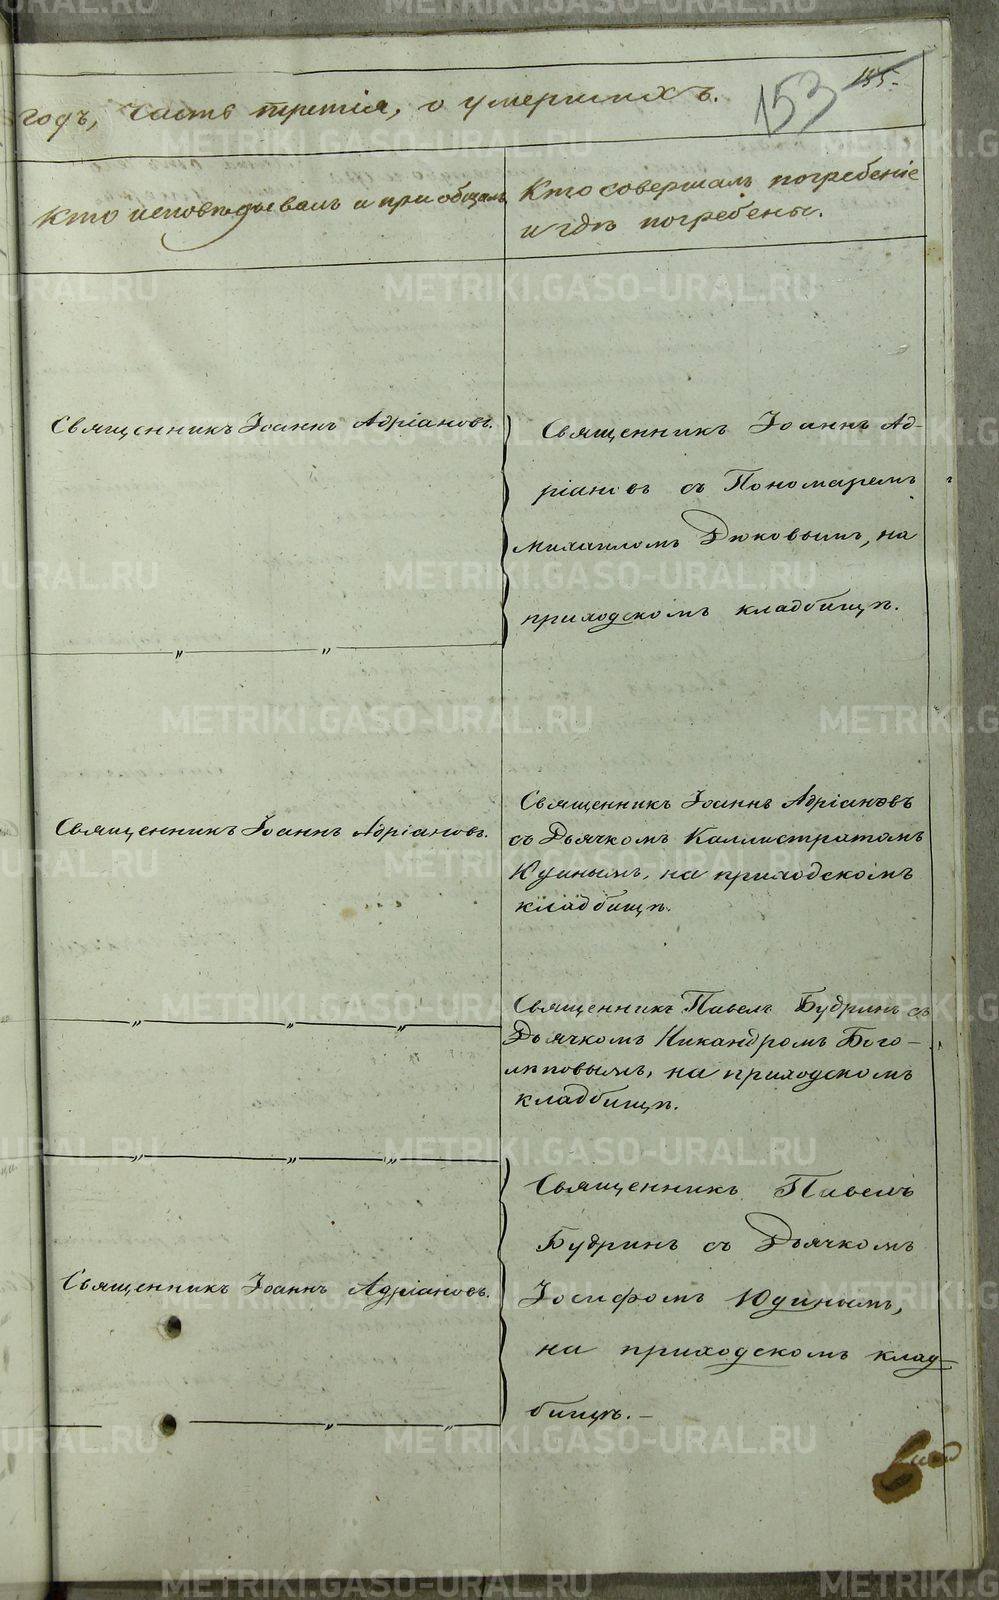 годъ, часть третія, о умершихъ.
153
155.
Кто исповѣдывалъ и приобщалъ
Кто совершалъ погребеніе
и гдѣ погребены.
Священникъ Іоаннъ Адріановъ.
Священникъ Іоаннъ Ад-
ріановъ съ Пономаремъ
Михаиломъ Дюковымъ, на
приходскомъ кладбищѣ.
Священникъ Іоаннъ Адріановъ.
Священникъ Іоаннъ Адріановъ
съ Дьячкомъ Каллистратомъ
Юдинымъ, на приходскомъ
кладбищѣ.
Священникъ Павелъ Будринъ съ
Дьячкомъ Никандромъ Бого-
лѣповымъ, на приходскомъ
кладбищѣ.
Священникъ Іоаннъ Адріановъ.
Священникъ Павелъ
Будринъ съ Дьячкомъ
Іосифомъ Юдинымъ,
на приходскомъ клад-
бищѣ. —
METRIKI.GASO-URAL.RU